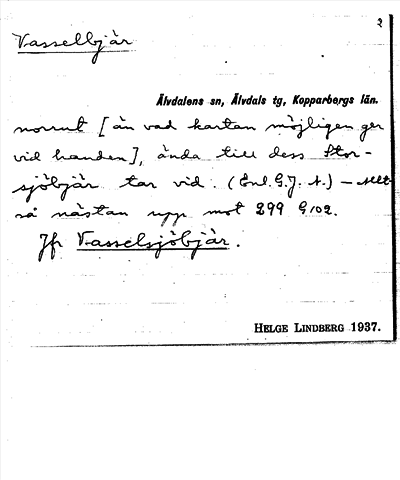 2
Vasselbjär
Älvdalens sn, Älvdals tg, Kopparbergs län.
norrut [än vad kartan möjligen ger
vid handen], ända till dess Stor-
sjöbjär tar vid. (Enl. G. J. A.) – Allt-
så nästan upp mot 299 G 102.
Jfr Vasselsjöbjär.
HELGE LINDBERG 1937.